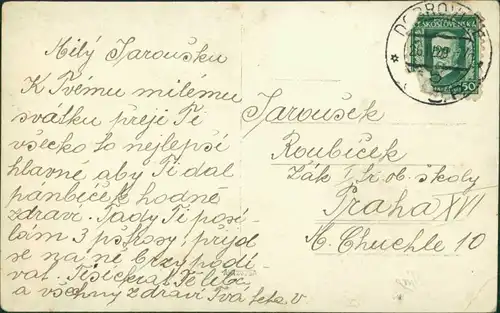 Milý Jaroušku
K Tvému milému
svátku přeji Ti
všecko to nejlepší
hlavně aby Ti dal
pánbíček hodně
zdraví. Tady Ti posí-
lám 3 pštrosy, přijd
se na ně brzy podí-
vat. Tisíckrát Tě líbá
a všechny zdraví Tvá teta V
DOBROVICE
ČESKOSLOVENSKO
50
Jaroušek
Roubíček
žák I. tř. ob. školy
Praha XVI
M. Chuchle 10